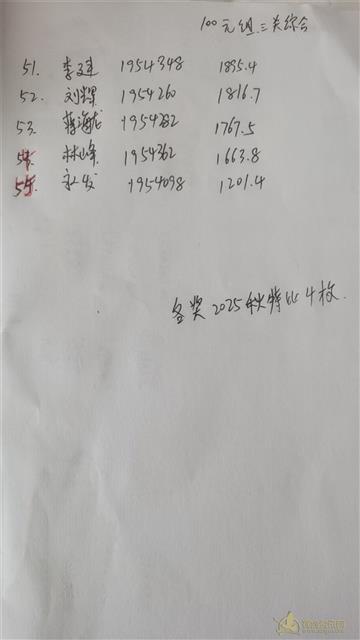 100元组三关综合
51. 李文建 1954348 1895.4
52. 刘辉 1954260 1816.7
53. 蒋海龙 1954282 1767.5
54. 林山峰 1954362 1663.8
55. 永发 1954098 1201.4
各奖2025秋特比4枚